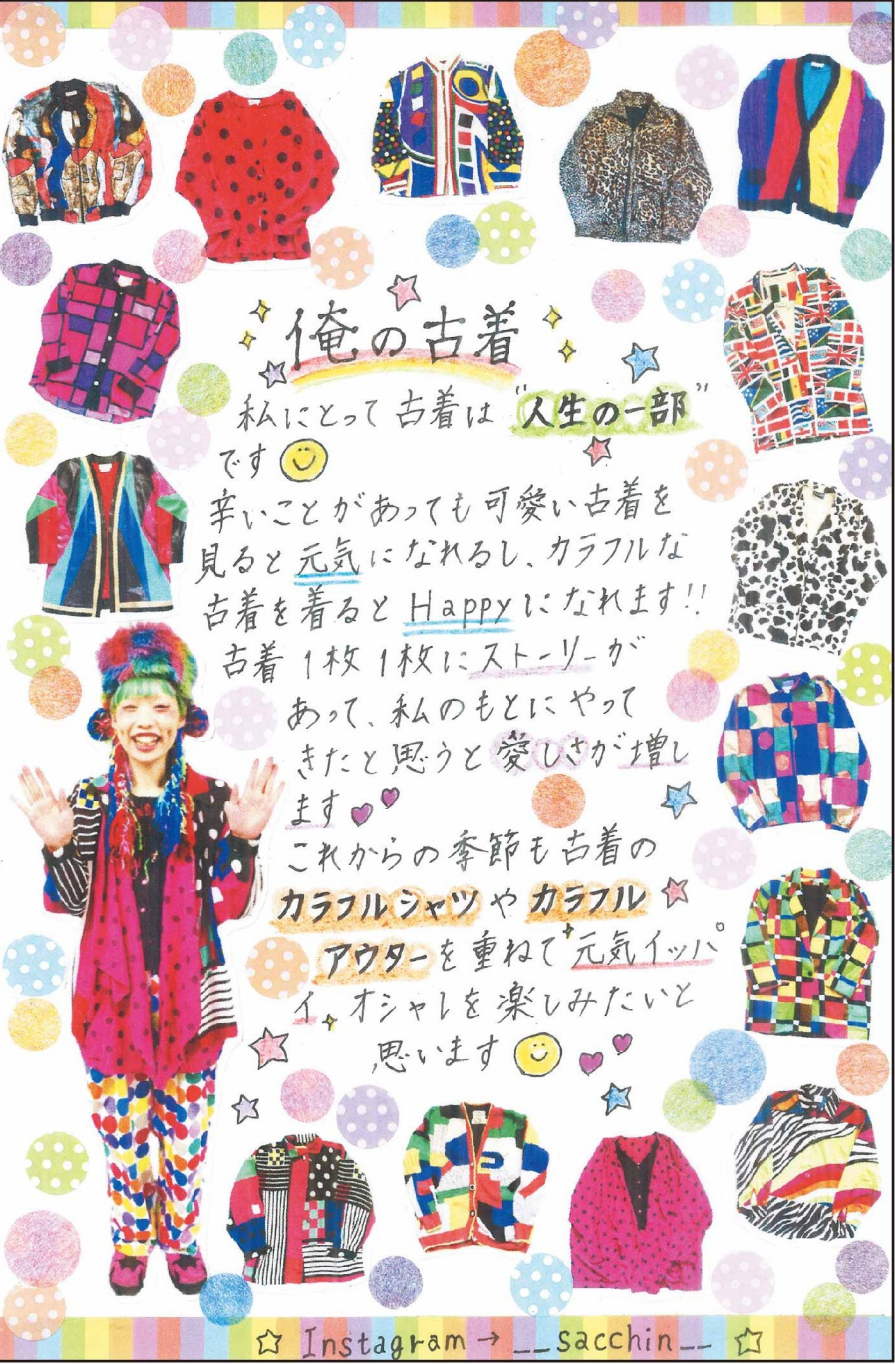 俺の古着
私にとって古着は"人生の一部"
です
辛いことがあっても可愛い古着を
見ると元気になれるし、カラフルな
古着を着るとHappyになれます!!
古着1枚1枚にストーリーが
あって、私のもとにやって
きたと思うと愛しさが増し
ます
これからの季節も古着の
カラフルシャツやカラフル
アウターを重ねて元気イッパ
イ、オシャレを楽しみたいと
思います
☆ Instagram → __sacchin__ ☆